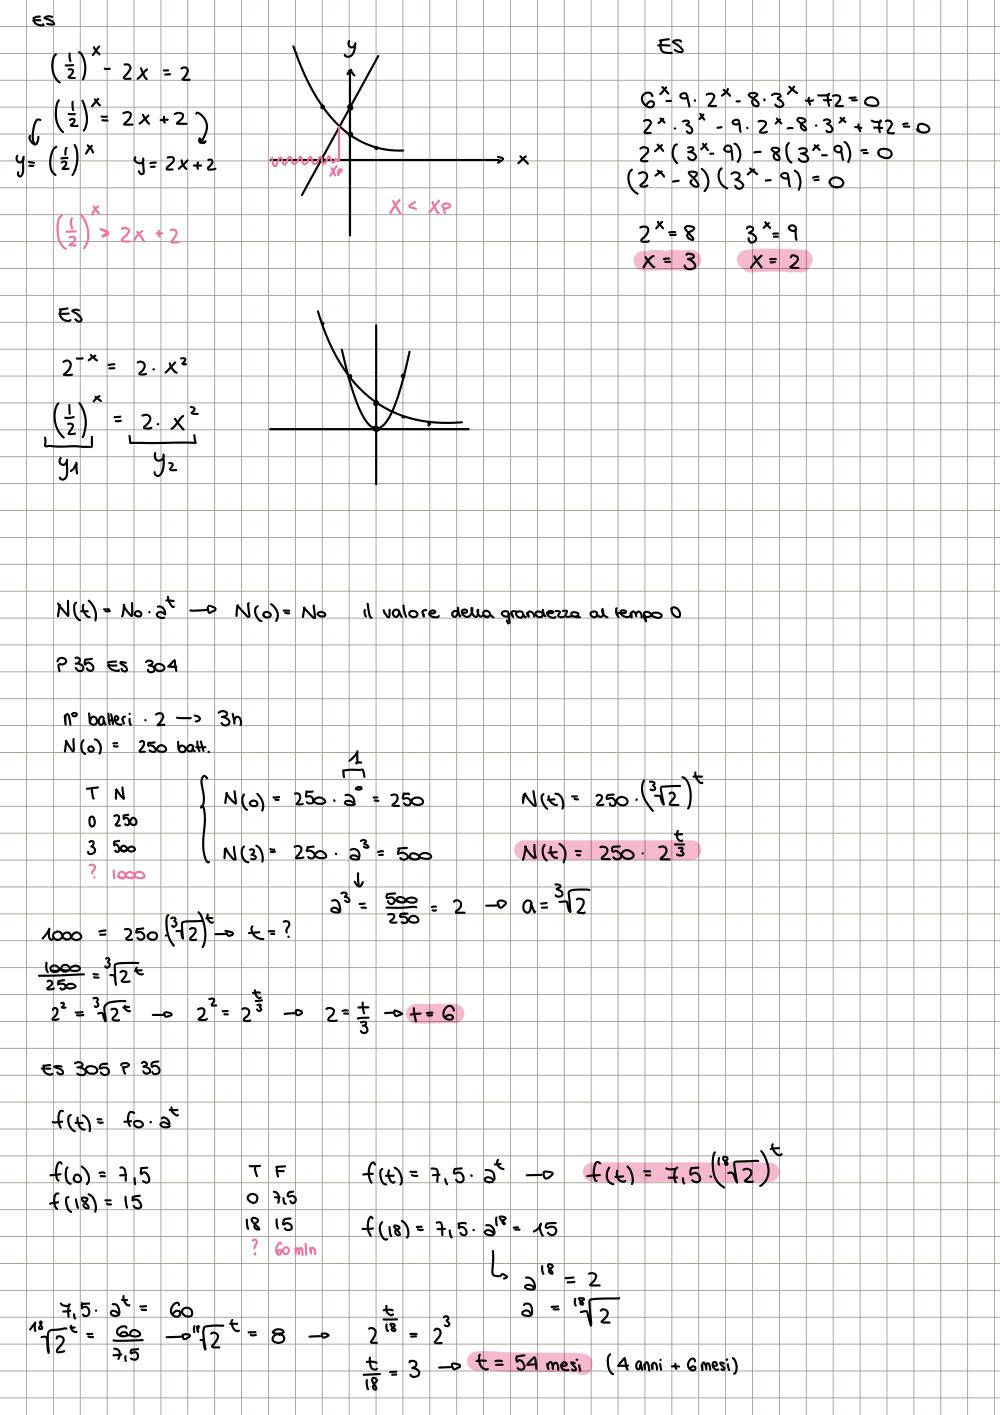 ES
(1/2)^x - 2x = 2
(1/2)^x = 2x + 2
y = (1/2)^x y = 2x + 2
(1/2)^x > 2x + 2
y
x
xp
x < xp
ES
6^x - 9 · 2^x - 8 · 3^x + 72 = 0
2^x · 3^x - 9 · 2^x - 8 · 3^x + 72 = 0
2^x (3^x - 9) - 8 (3^x - 9) = 0
(2^x - 8) (3^x - 9) = 0
2^x = 8 3^x = 9
x = 3 x = 2
ES
2^-x = 2 · x²
(1/2)^x = 2 · x²
y1 y2
N(t) = No · a^t → N(0) = No il valore della grandezza al tempo 0
P 35 ES 304
n° batteri · 2 → 3h
N(0) = 250 batt.
T N
0 250
3 500
? 1000
1
N(0) = 250 · a^0 = 250
N(3) = 250 · a³ = 500
↓
a³ = 500/250 = 2 → a = ³√2
N(t) = 250 · (³√2)^t
N(t) = 250 · 2^t/3
1000 = 250 · (³√2)^t → t = ?
1000/250 = ³√2^t
2² = ³√2^t → 2² = 2^t/3 → 2 = t/3 → t = 6
ES 305 P 35
f(t) = fo · a^t
f(0) = 7,5
f(18) = 15
T F
0 7,5
18 15
? 60 mln
f(t) = 7,5 · a^t → f(t) = 7,5 · (¹⁸√2)^t
f(18) = 7,5 · a^18 = 15
a^18 = 2
a = ¹⁸√2
7,5 · a^t = 60
¹⁸√2^t = 60/7,5 → ¹⁸√2^t = 8 → 2^t/18 = 2³
t/18 = 3 → t = 54 mesi (4 anni + 6 mesi)